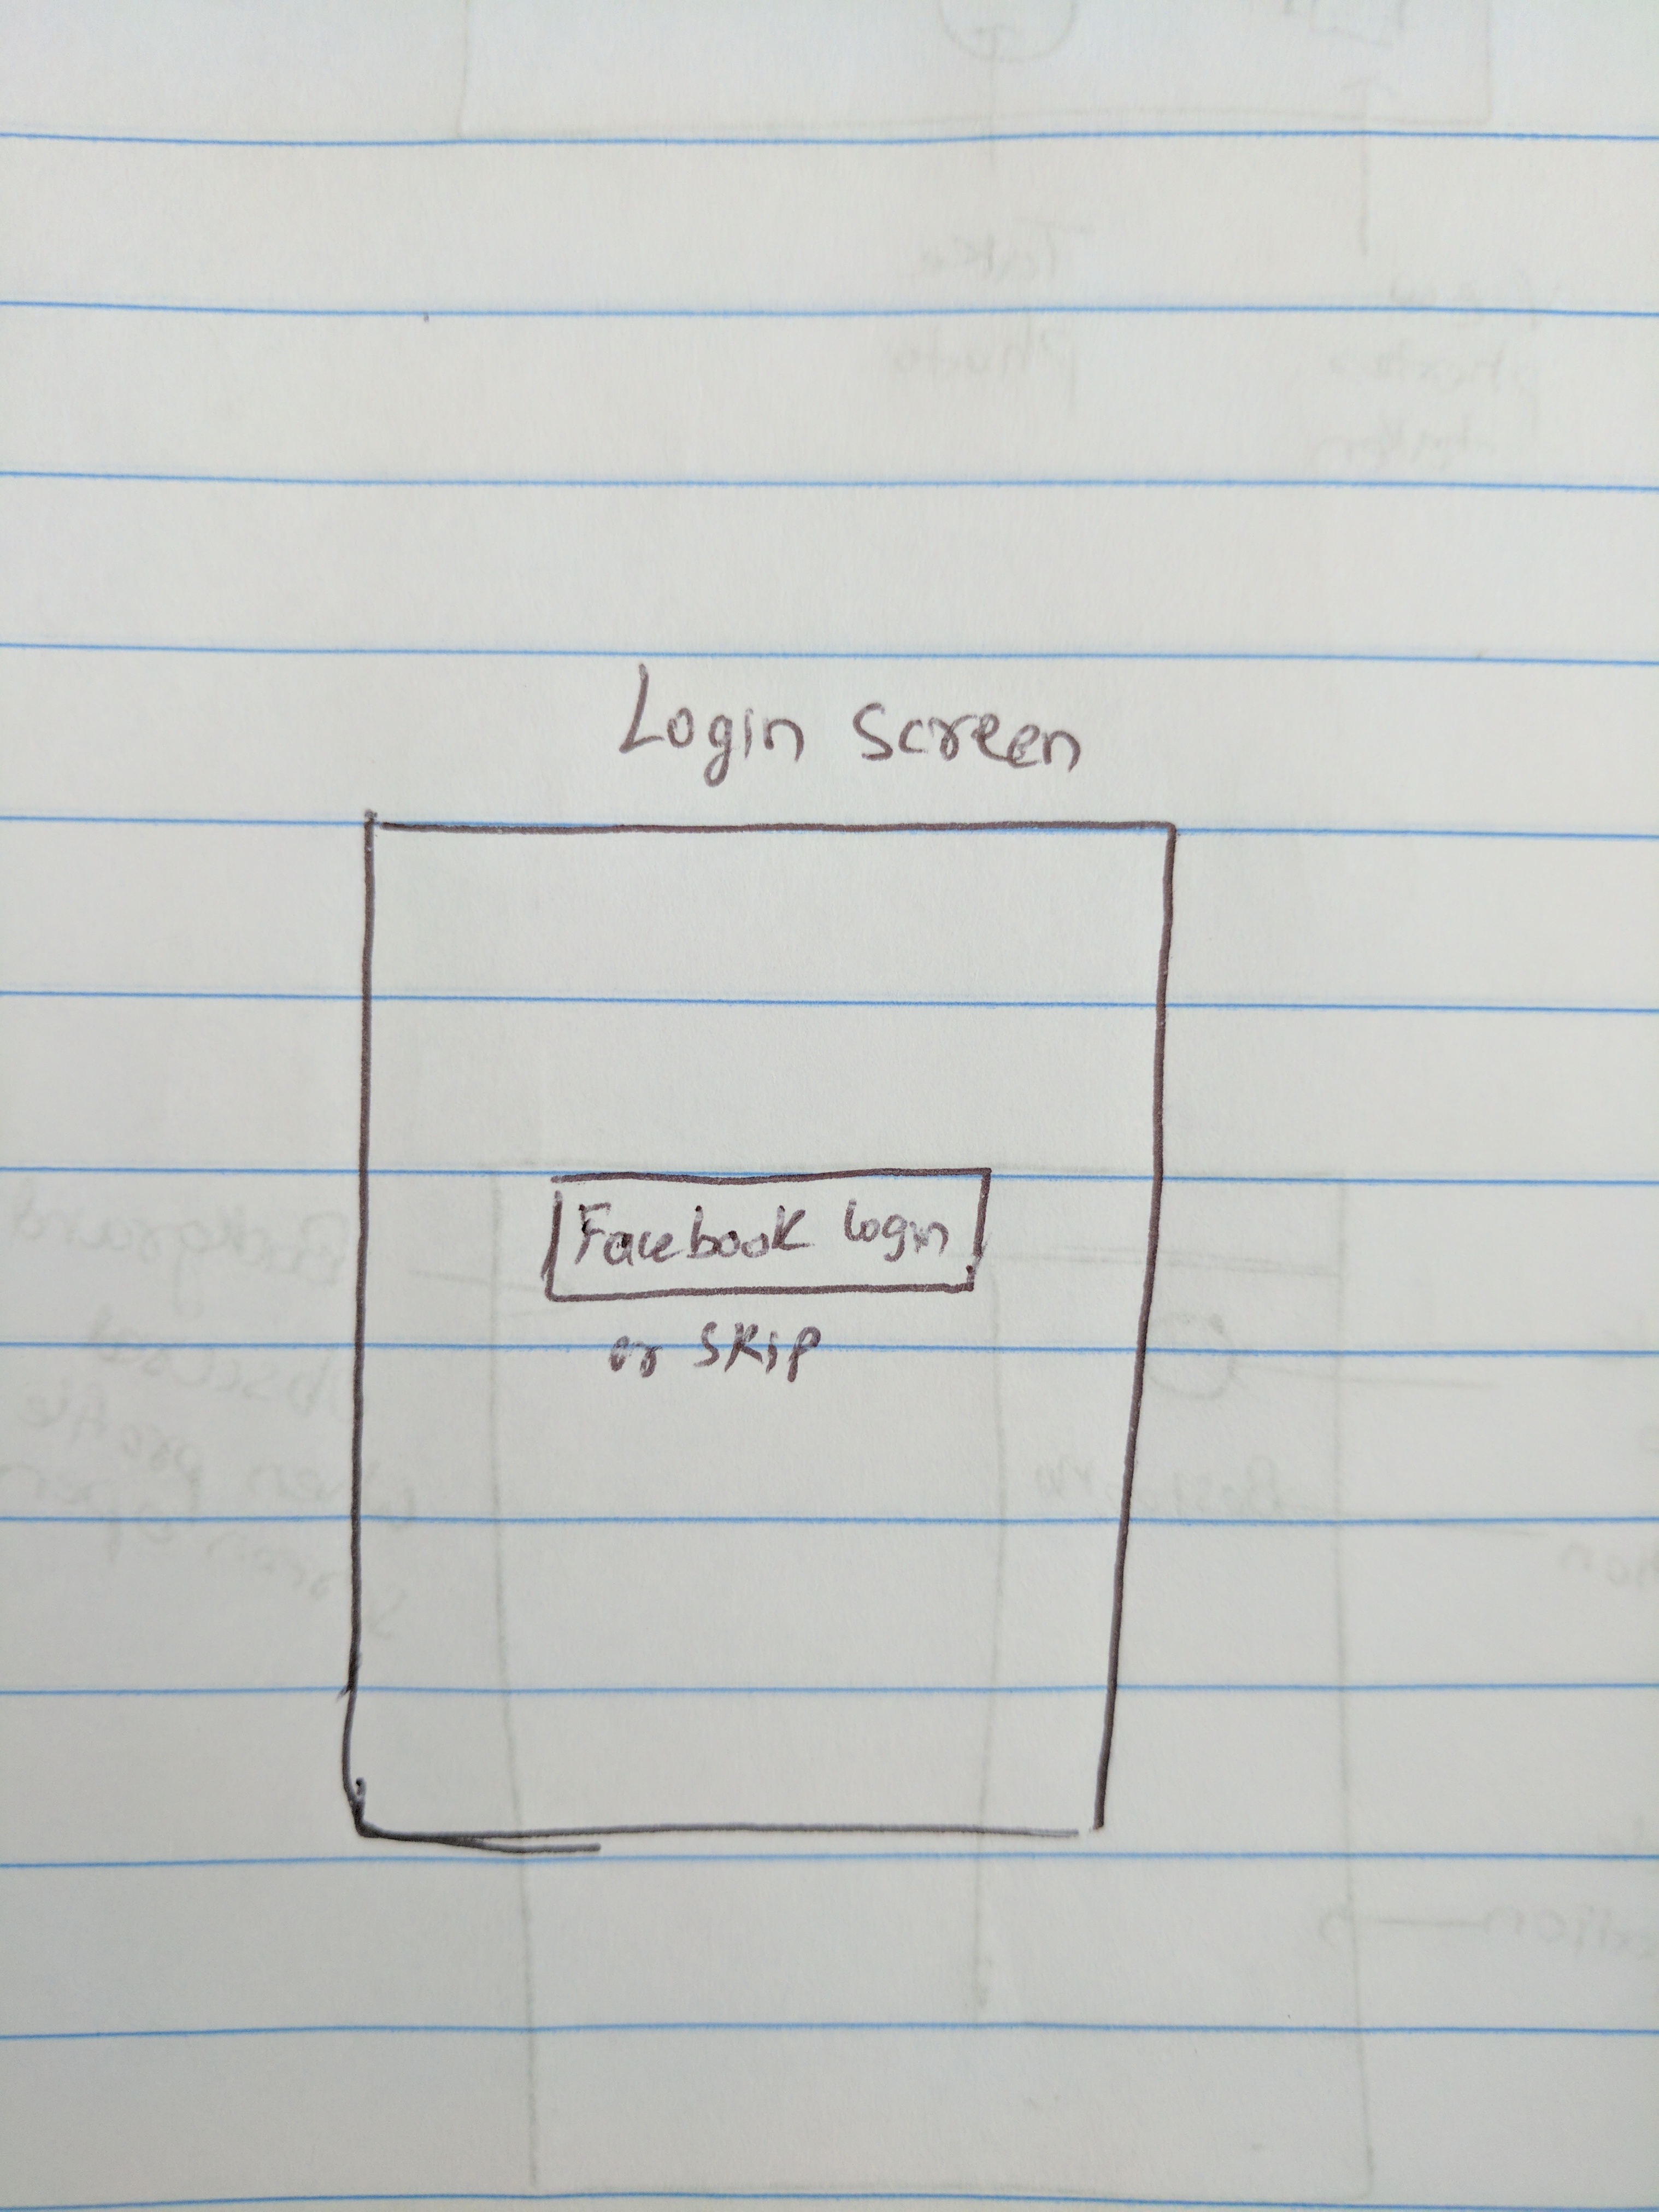 Login Screen
Facebook login
or Skip